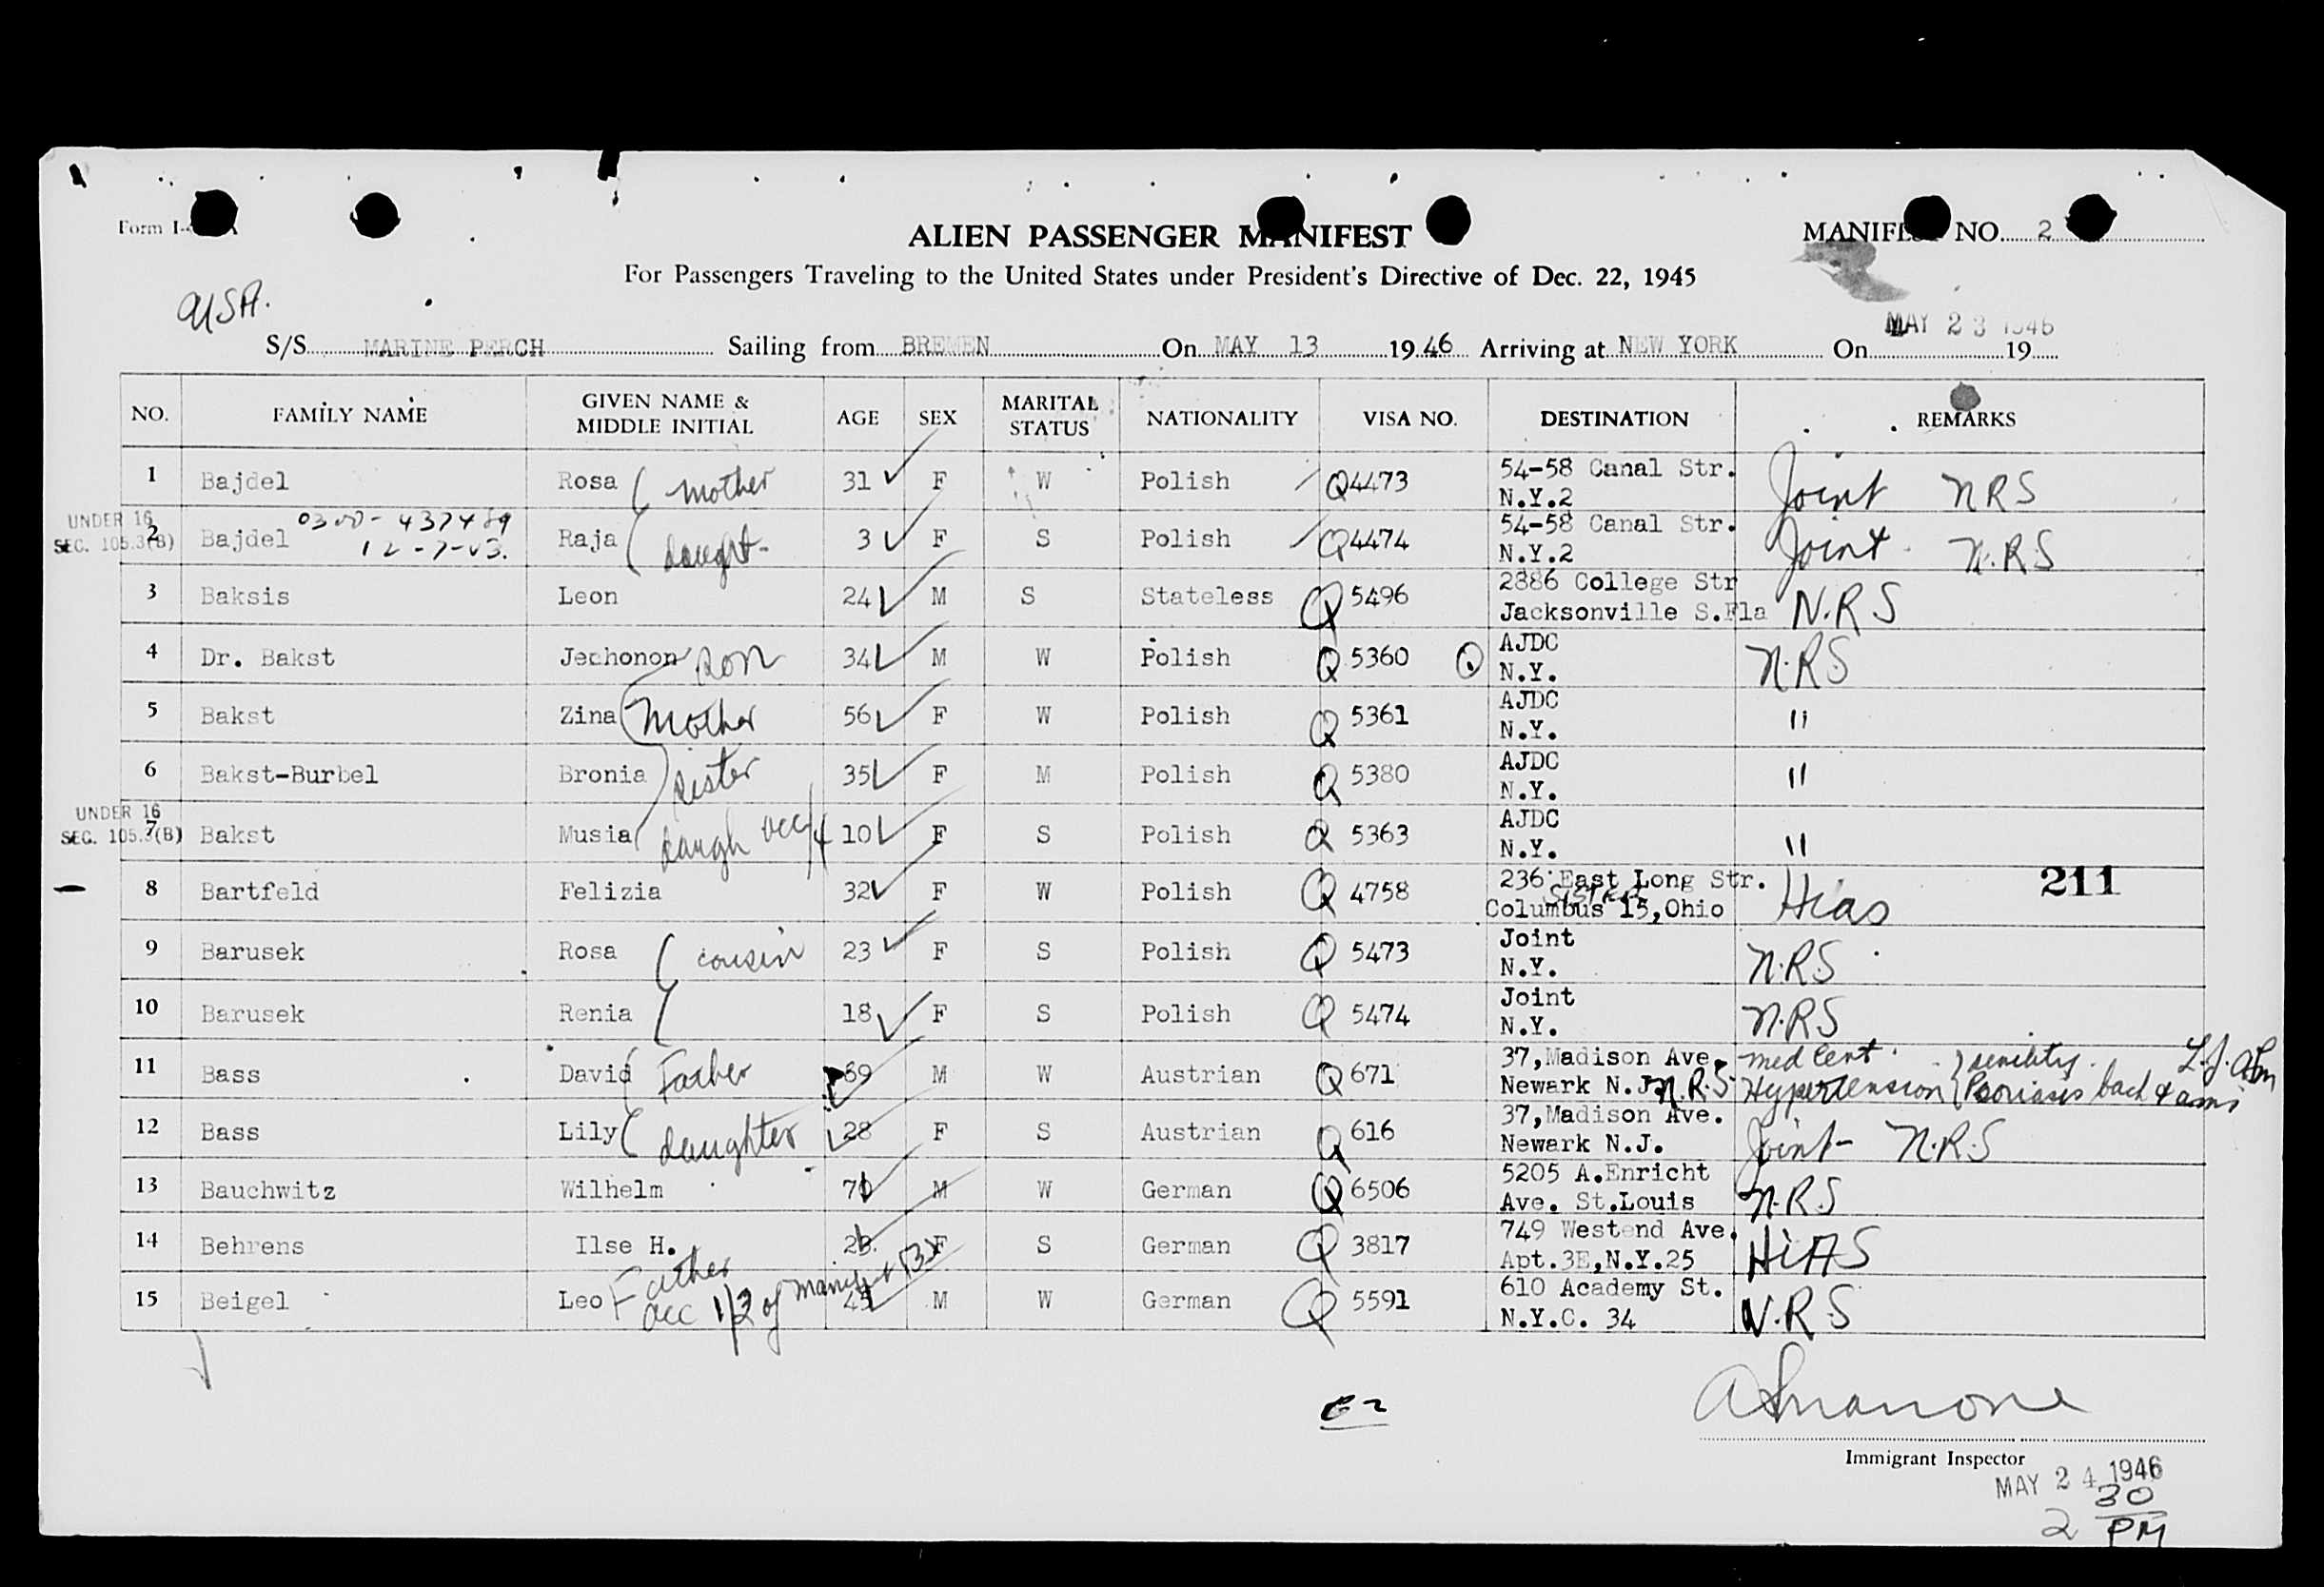 Form I-
ALIEN PASSENGER MANIFEST
MANIFEST NO. 2
For Passengers Traveling to the United States under President's Directive of Dec. 22, 1945
USA.
MAY 23 1946
S/S MARINE PERCH Sailing from BREMEN On MAY 13 1946 Arriving at NEW YORK On 19
NO. FAMILY NAME GIVEN NAME & MIDDLE INITIAL AGE SEX MARITAL STATUS NATIONALITY VISA NO. DESTINATION REMARKS
1 Bajdel Rosa mother 31 F W Polish Q4473 54-58 Canal Str. N.Y.2 Joint NRS
UNDER 16 SEC. 105.3(B)
0300-437489
12-7-53.
2 Bajdel Raja daught- 3 F S Polish Q4474 54-58 Canal Str. N.Y.2 Joint N.R.S
3 Baksis Leon 24 M S Stateless Q 5496 2886 College Str Jacksonville S.Fla N.R.S
4 Dr. Bakst Jechonon son 34 M W Polish Q 5360 AJDC N.Y. N.R.S
5 Bakst Zina Mother 56 F W Polish Q 5361 AJDC N.Y. "
6 Bakst-Burbel Bronia sister 35 F M Polish Q 5380 AJDC N.Y. "
UNDER 16 SEC. 105.3(B)
7 Bakst Musia daugh acc/4 10 F S Polish Q 5363 AJDC N.Y. "
8 Bartfeld Felizia 32 F W Polish Q 4758 236 East Long Str. SISTER Columbus 15,Ohio Hias 211
9 Barusek Rosa cousin 23 F S Polish Q 5473 Joint N.Y. N.R.S
10 Barusek Renia 18 F S Polish Q 5474 Joint N.Y. N.R.S
11 Bass David Father 69 M W Austrian Q 671 37,Madison Ave. Newark N.J. N.R.S. med Cert. senility. Hypertension Psoriasis back & arms
12 Bass Lily daughter 28 F S Austrian Q 616 37,Madison Ave. Newark N.J. Joint- N.R.S
13 Bauchwitz Wilhelm 70 M W German Q 6506 5205 A.Enricht Ave. St.Louis N.R.S
14 Behrens Ilse H. 23. F S German Q 3817 749 Westend Ave. Apt.3E,N.Y.25 HiAS
15 Beigel Leo Father acc 1/2 of Manifest 45 M W German Q 5591 610 Academy St. N.Y.C. 34 N.R.S
Immigrant Inspector
MAY 24 1946
2 30 PM